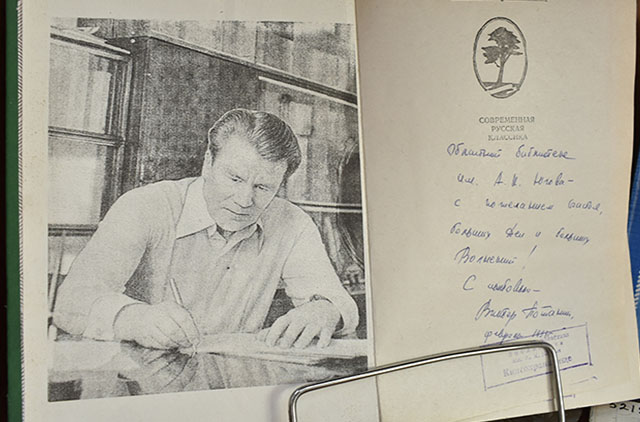 СОВРЕМЕННАЯ
РУССКАЯ
КЛАССИКА
Областной библиотеке
им. А. К. Югова –
с пожеланием счастья,
больших дел и больших
Волнений!
С любовью –
Виктор Потанин,
февраль